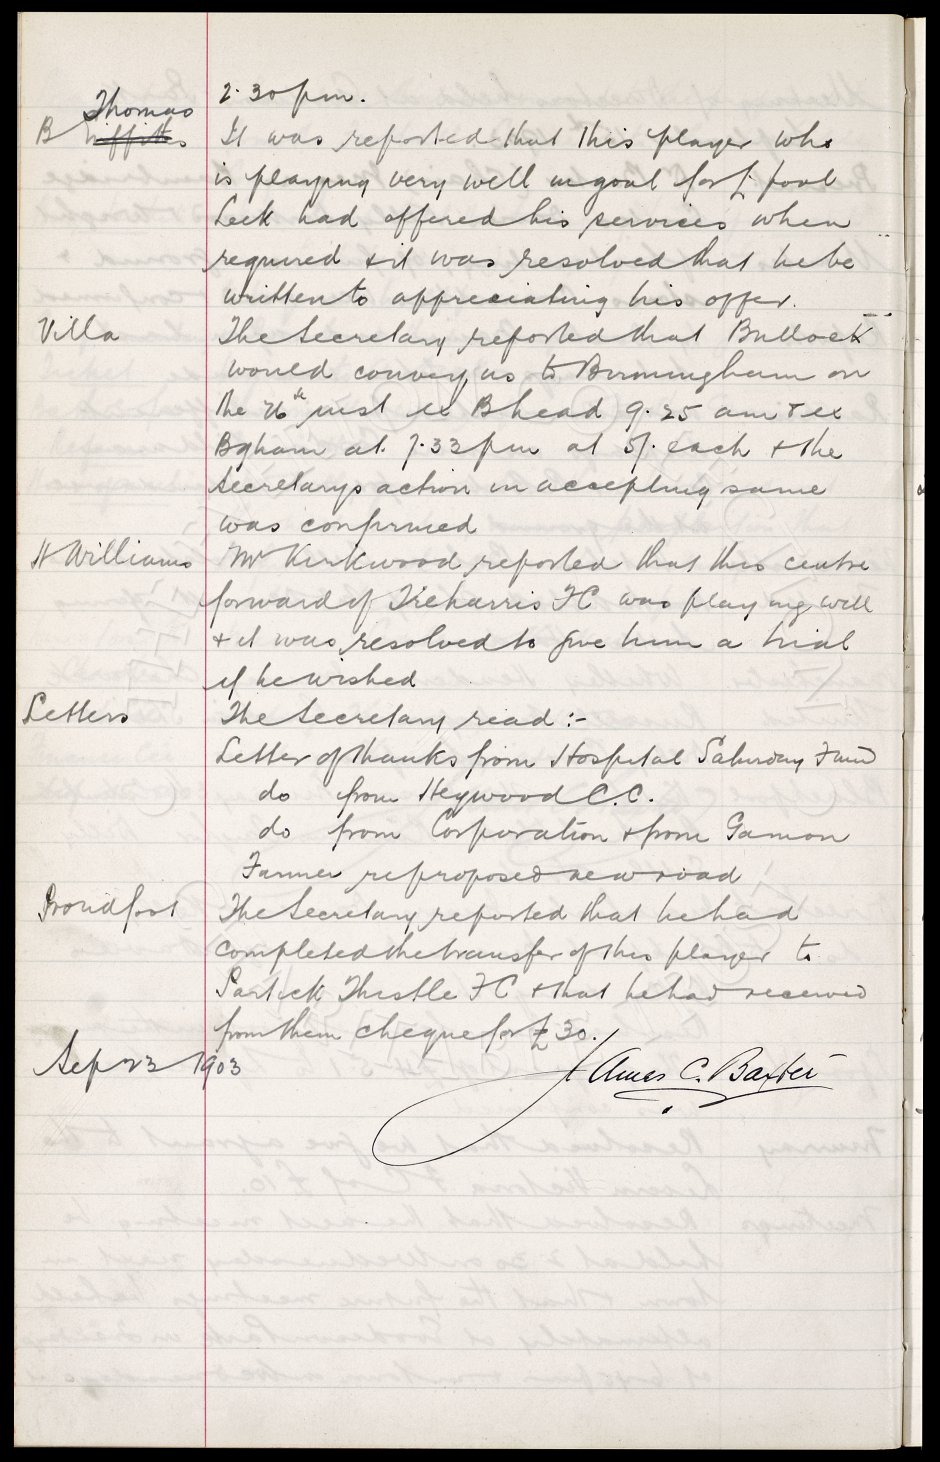 2.30 pm.
Thomas
B Griffiths
It was reported that this player who
is playing very well in goal for L'pool
Leek had offered his services when
required & it was resolved that he be
written to appreciating his offer.
Villa
The Secretary reported that Bullock
would convey us to Birmingham on
the 26th inst ex Bhead 9.25 am & ex
Bgham at 7.33 pm at 5/- each & the
Secretarys action in accepting same
was confirmed
H Williams
Mr Kirkwood reported that this centre
forward of Treharris FC was playing well
& it was resolved to give him a trial
if he wished
Letters
The Secretary read :-
Letter of thanks from Hospital Saturday Fund
do from Heywood C.C.
do from Corporation & from Gamon
Farmer re proposed new road
Proudfoot
The Secretary reported that he had
completed the transfer of this player to
Partick Thistle FC & that he had received
from them cheque for £30.
Sep 23 1903
James C. Baxter